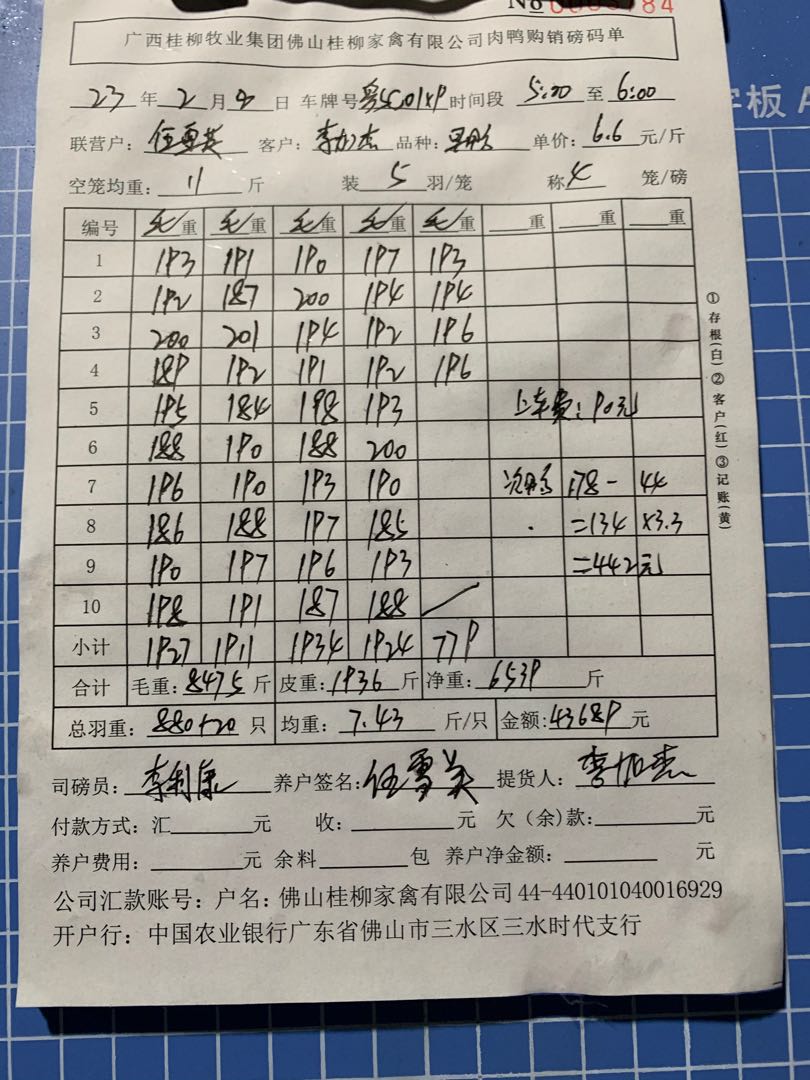 No
广西桂柳牧业集团佛山桂柳家禽有限公司肉鸭购销磅码单
23年2月 日 车牌号 时间段 5:00 至 6:00
联营户: 任雪英 客户: 李加杰 品种: 单价: 6.6 元/斤
空笼均重: 11 斤 装 5 羽/笼 称 4 笼/磅
编号 毛重 毛重 毛重 毛重 毛重 重 重 重
1 193 191 190 197 193
2 192 187 200 194 194
3 200 201 194 192 196
4 189 192 191 192 196
5 195 184 198 193 上车费: 90元
6 188 190 188 200
7 196 190 193 190 次鸭 178- 44
8 186 188 197 185 =134 ×3.3
9 190 197 196 193 =442元
10 198 191 187 188
小计 1927 1911 1934 1924 779
合计 毛重: 8475 斤 皮重: 1936 斤 净重: 6539 斤
总羽重: 880+20 只 均重: 7.43 斤/只 金额: 43689 元
司磅员: 李利康 养户签名: 任雪英 提货人: 李加杰
付款方式: 汇 元 收: 元 欠(余)款: 元
养户费用: 元 余料 包 养户净金额: 元
公司汇款账号: 户名: 佛山桂柳家禽有限公司 44-440101040016929
开户行: 中国农业银行广东省佛山市三水区三水时代支行
①存根(白)②客户(红)③记账(黄)
字板 A